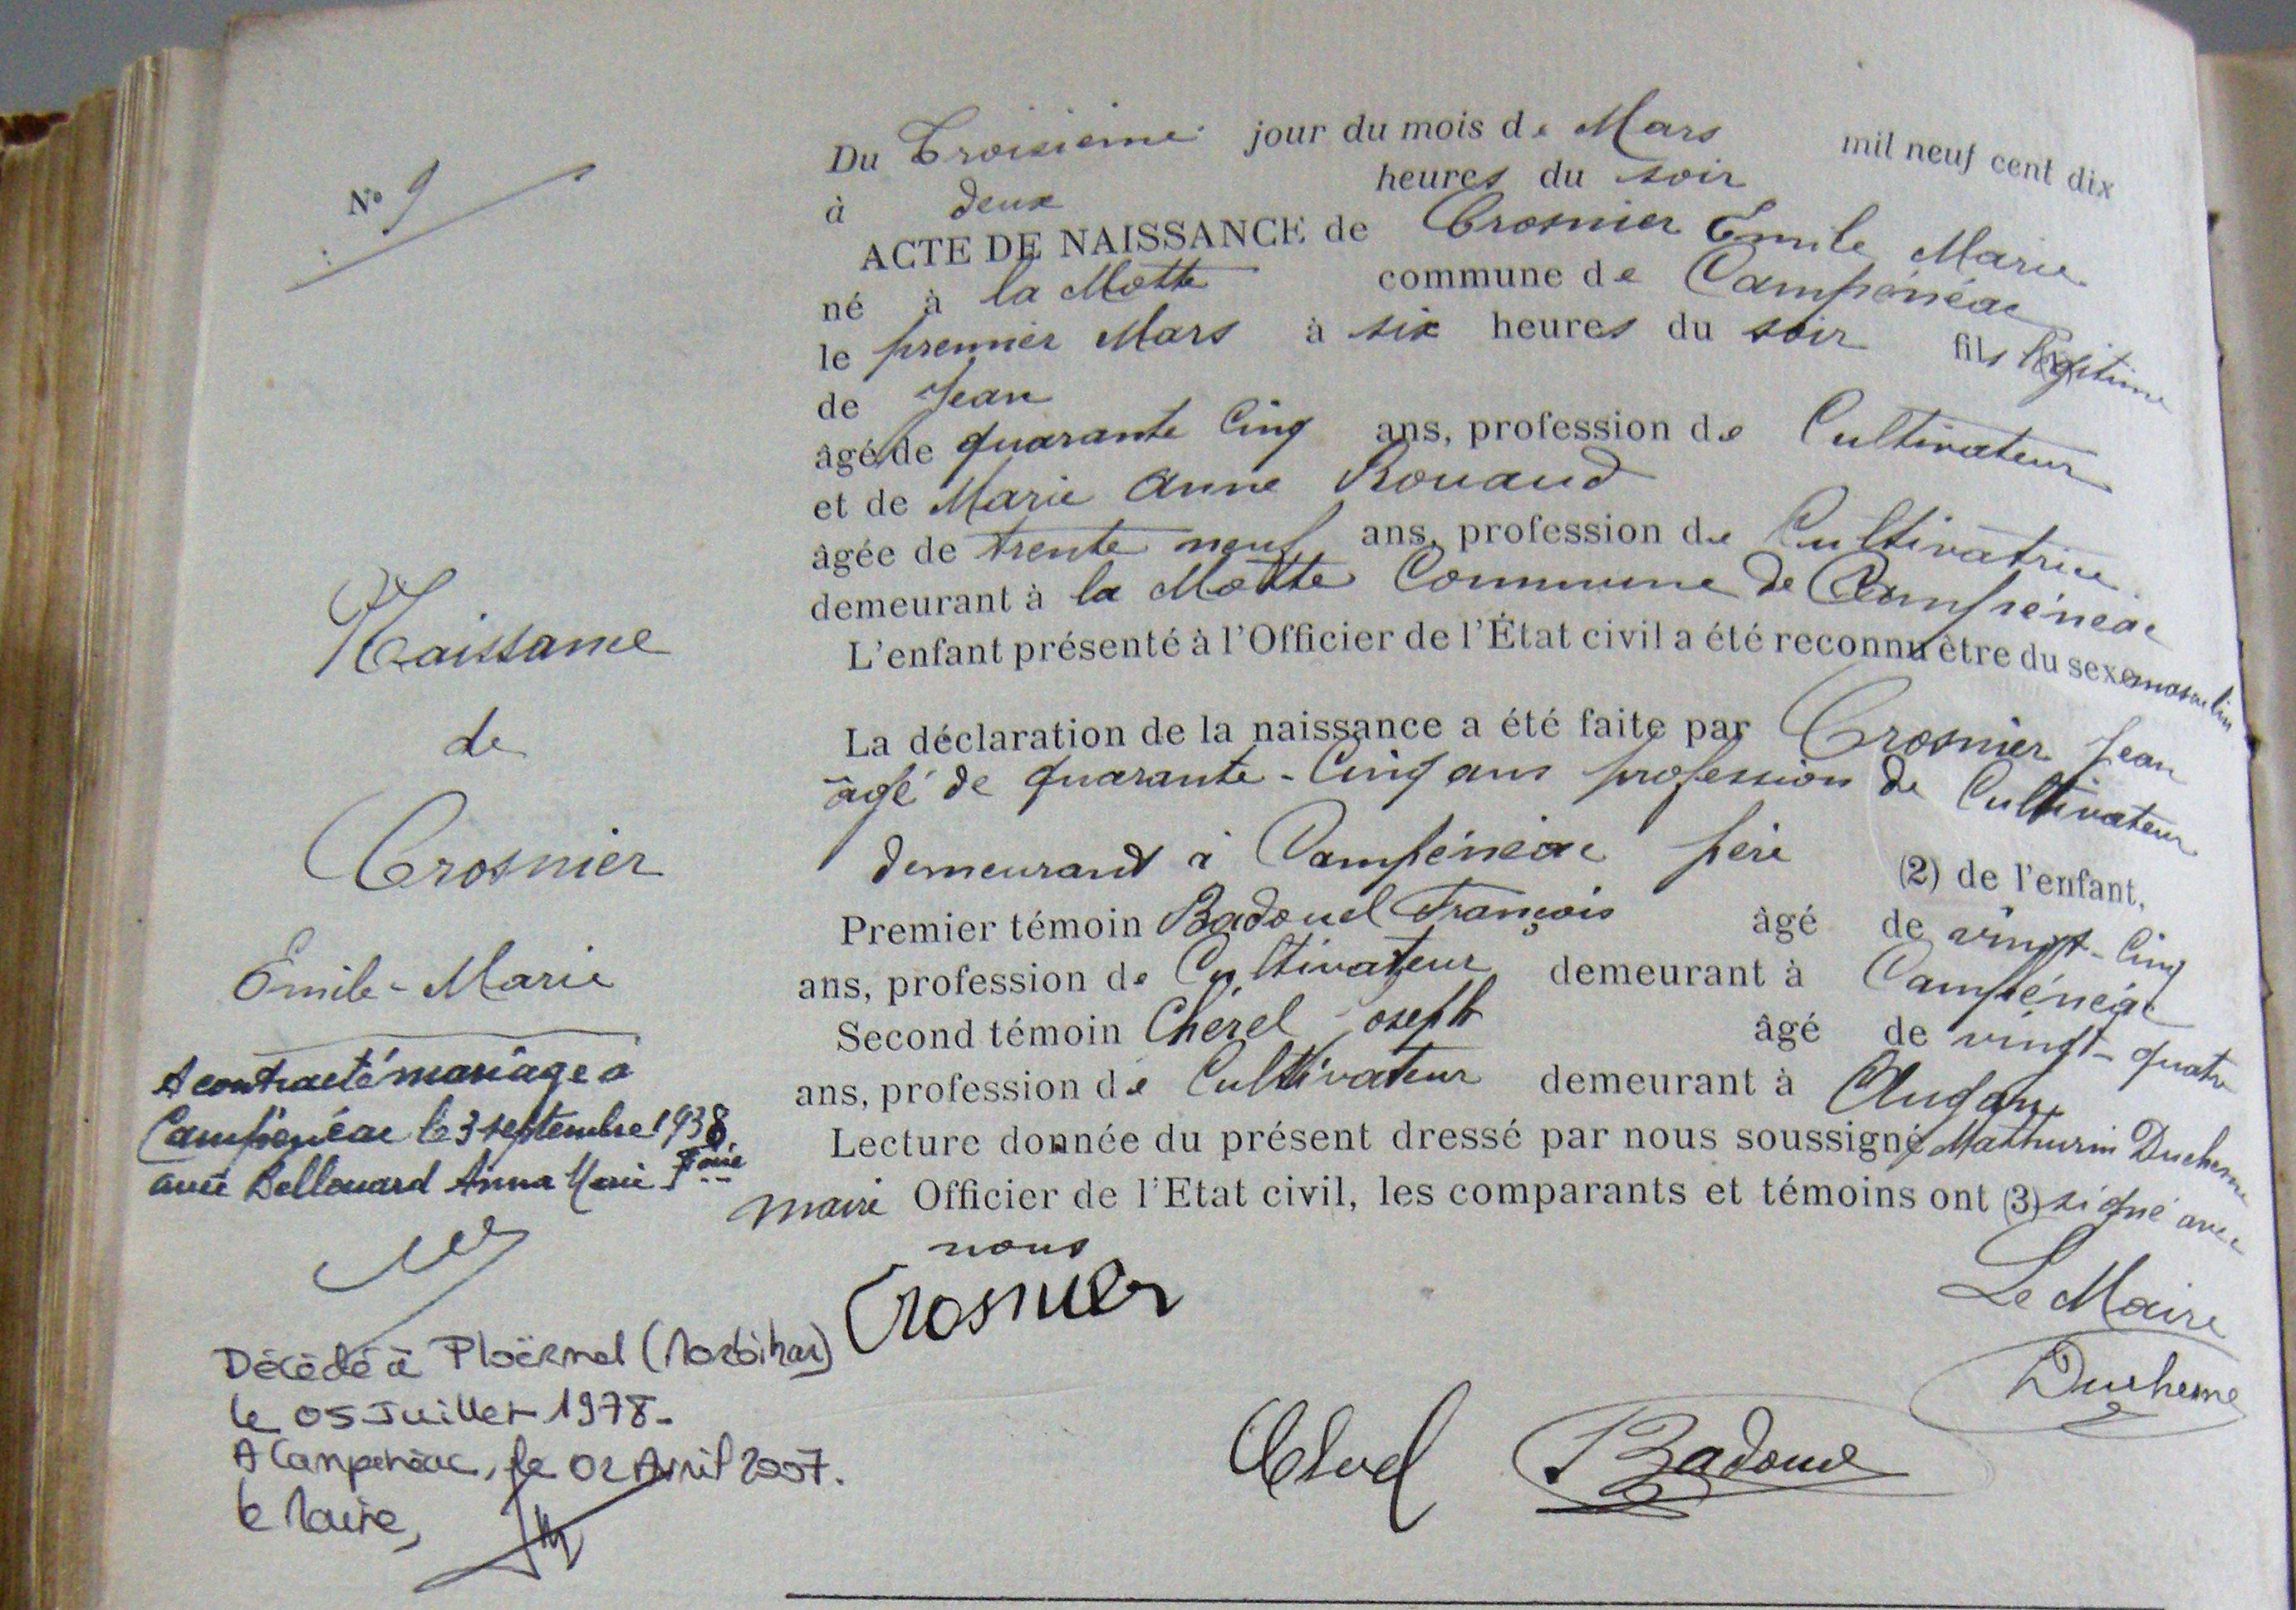 N° 9
Du Troisième jour du mois de Mars mil neuf cent dix
à deux heures du soir
ACTE DE NAISSANCE de Crosnier Emile Marie
né à la Motte commune de Campénéac
le premier Mars à six heures du soir fils légitime
de Jean
âgé de quarante Cinq ans, profession de Cultivateur
et de Marie Anne Rouaud
âgée de trente neuf ans, profession de Cultivatrice
demeurant à la Motte Commune de Campénéac
L'enfant présenté à l'Officier de l'État civil a été reconnu être du sexe masculin
La déclaration de la naissance a été faite par Crosnier Jean
âgé de quarante-Cinq ans profession de Cultivateur
demeurant à Campénéac père (2) de l'enfant,
Premier témoin Badouel François âgé de vingt-Cinq
ans, profession de Cultivateur demeurant à Campénéac
Second témoin Chérel Joseph âgé de vingt-quatre
ans, profession de Cultivateur demeurant à Augan
Lecture donnée du présent dressé par nous soussigné Mathurin Duchesne
maire Officier de l'Etat civil, les comparants et témoins ont (3) signé avec
nous
Crosnier
Le Maire
Duchesne
Cherel
Badouel
Naissance
de
Crosnier
Emile-Marie
A contracté mariage à
Campénéac le 3 septembre 1938
avec Bellouard Anna Marie
Décédé à Ploërmel (Morbihan)
le 05 Juillet 1978.
A Campénéac, le 02 Avril 2007.
le Maire,